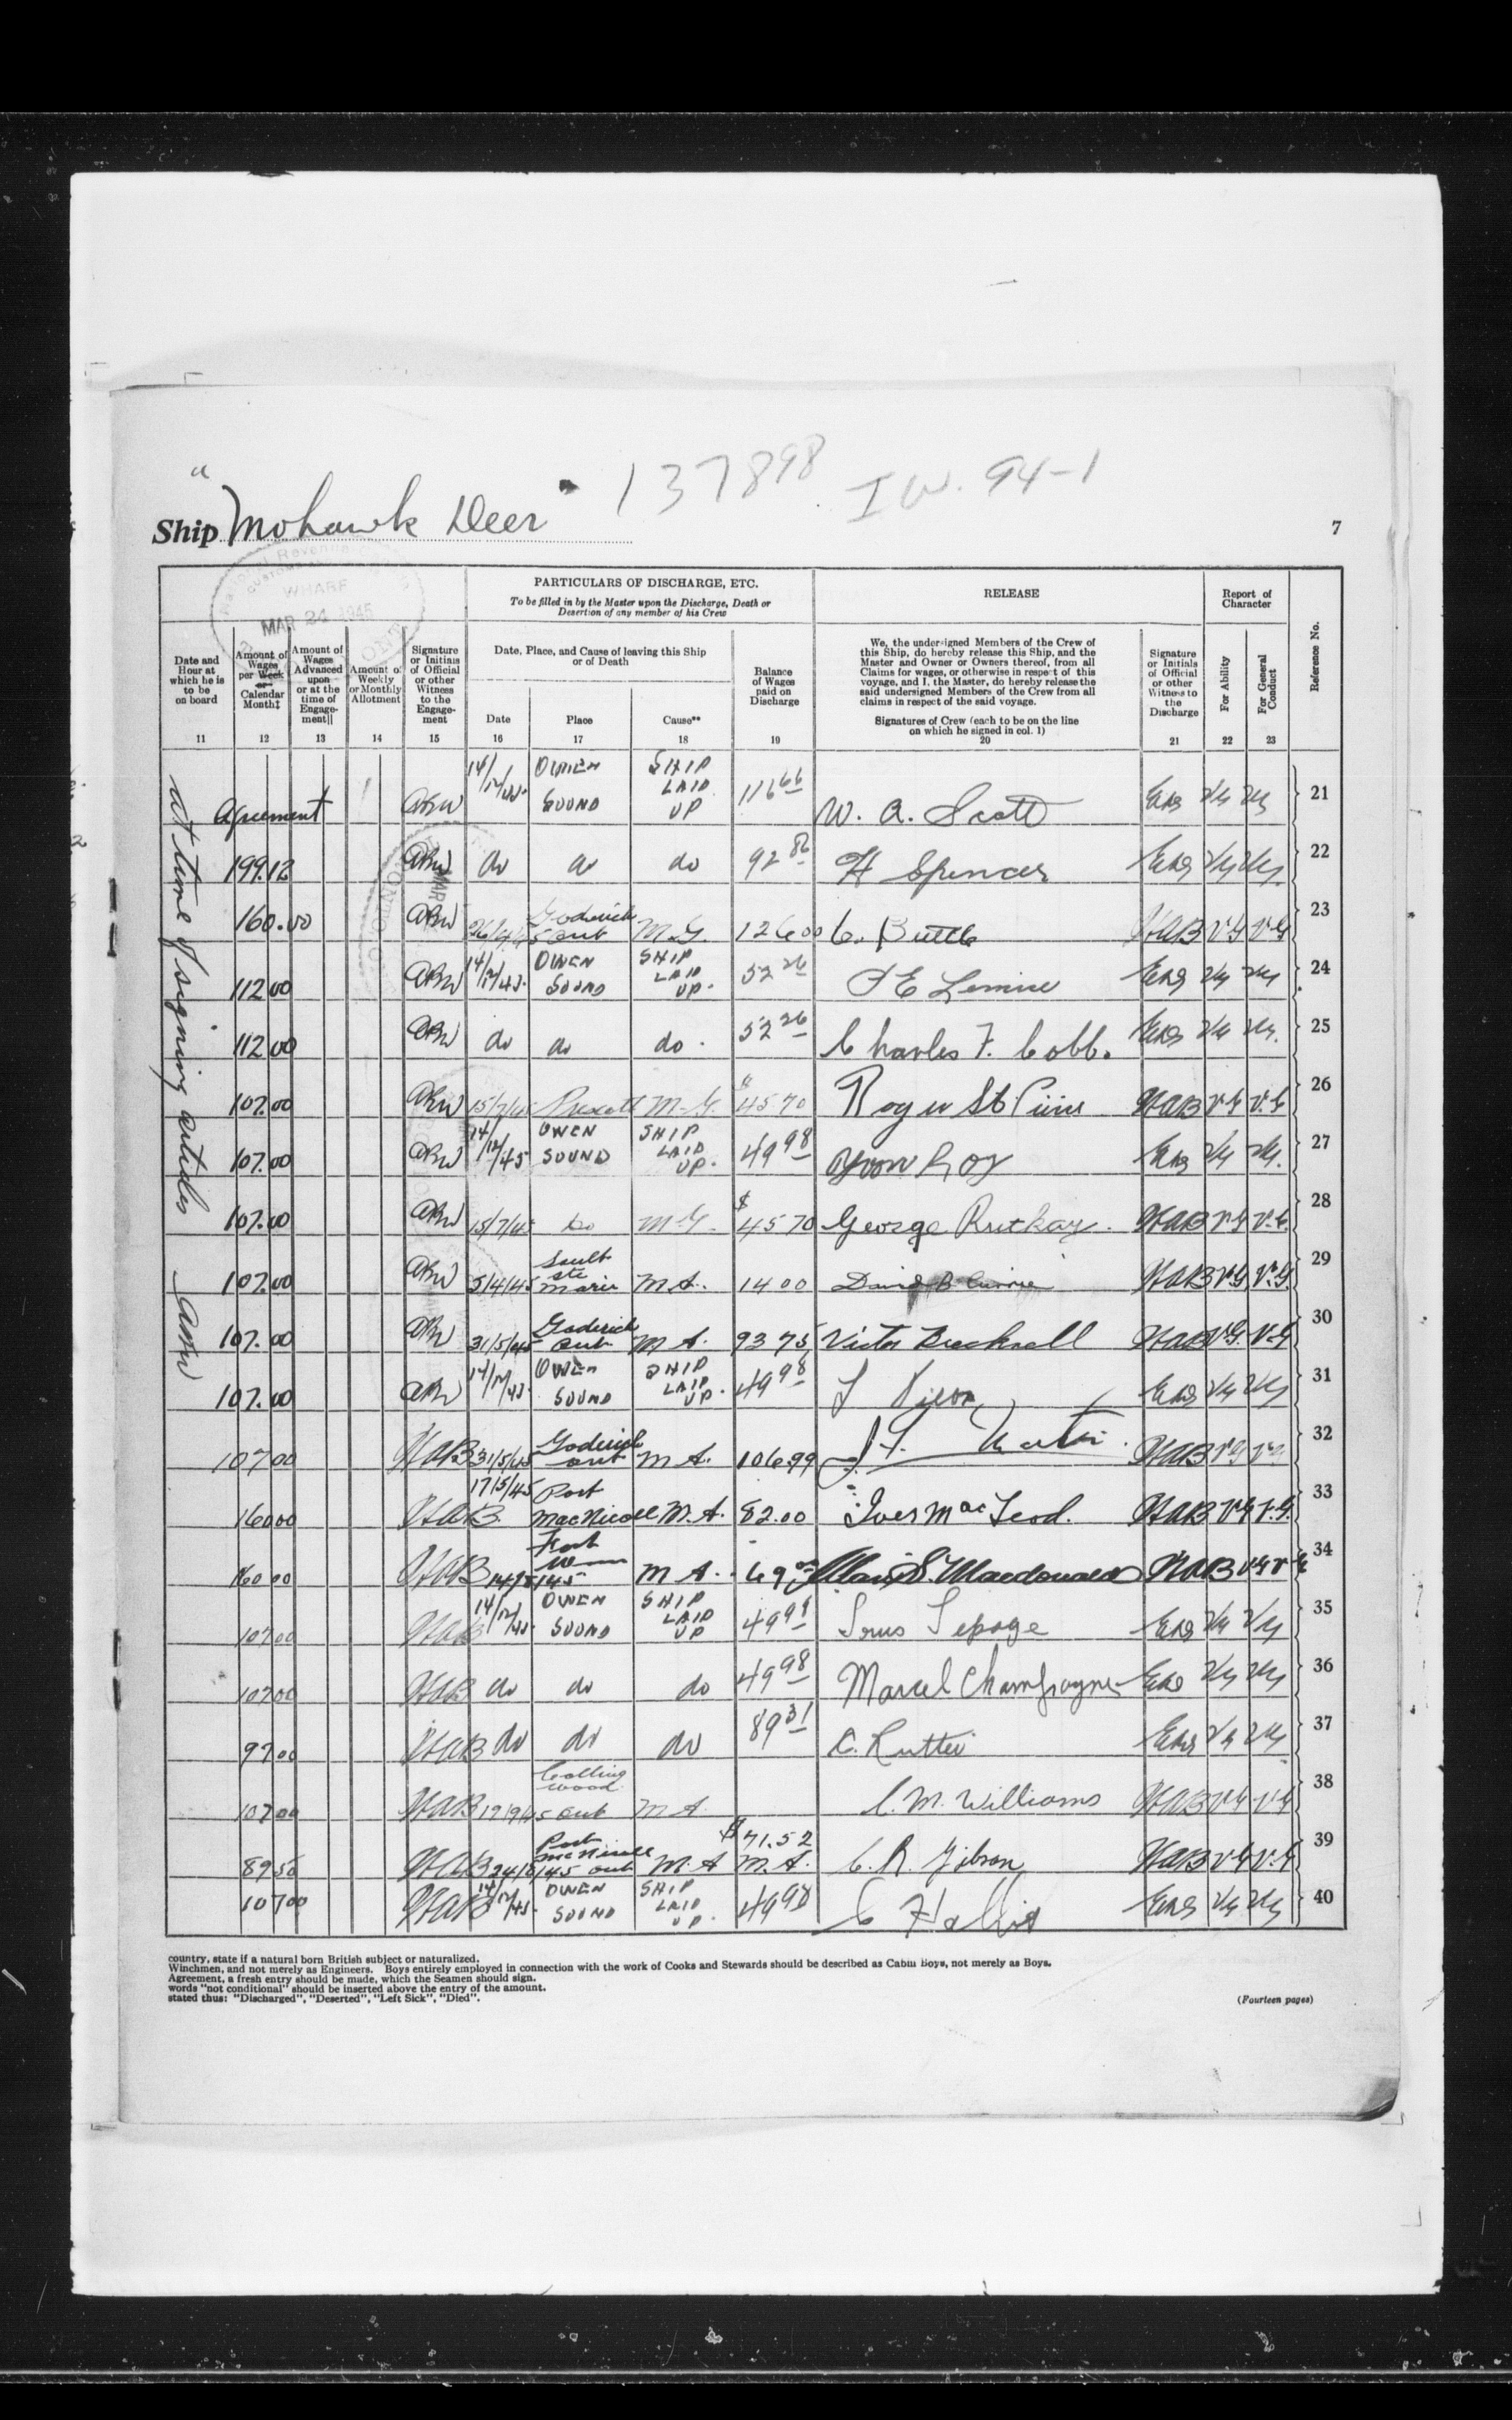 " Mohawk Deer " 137898 I W. 94-1
Ship
7
National Revenue
CUSTOMS
WHARF
MAR 24 1945
PARTICULARS OF DISCHARGE, ETC.
To be filled in by the Master upon the Discharge, Death or
Desertion of any member of his Crew
RELEASE
Report of
Character
Date and
Hour at
which he is
to be
on board
11
Amount of
Wages
per Week
or
Calendar
Month‡
12
Amount of
Wages
Advanced
upon
or at the
time of
Engage-
ment||
13
Amount of
Weekly
or Monthly
Allotment
14
Signature
or Initials
of Official
or other
Witness
to the
Engage-
ment
15
Date, Place, and Cause of leaving this Ship
or of Death
Date
16
Place
17
Cause**
18
Balance
of Wages
paid on
Discharge
19
We, the undersigned Members of the Crew of
this Ship, do hereby release this Ship, and the
Master and Owner or Owners thereof, from all
Claims for wages, or otherwise in respect of this
voyage, and I, the Master, do hereby release the
said undersigned Members of the Crew from all
claims in respect of the said voyage.
Signatures of Crew (each to be on the line
on which he signed in col. 1)
20
Signature
or Initials
of Official
or other
Witness to
the
Discharge
21
For Ability
22
For General
Conduct
23
Reference No.
at time of signing articles
Agreement ARW 14/12/45 OWEN SOUND SHIP LAID UP 116 66 W. A. Scott 21
199.12 ARW do do do 92 86 H Spencer 22
160.00 ARW Goderich Ont M.G. 126 00 C. Buttle HAB V.G V.G 23
112 00 ARW 14/12/45 OWEN SOUND SHIP LAID UP. 52 26 24
112 00 ARW do do do. 52 26 Charles F. Cobb. 25
107.00 ARW 15/7/45 M.G. 45 70 HAB V.G V.G 26
107.00 ARW 14/12/45 OWEN SOUND SHIP LAID UP. 49 98 Yvon Roy 27
107.00 ARW 15/7/45 Do M.G. $ 45 70 George Rutkay. HAB V.G V.G. 28
107.00 ARW 5/4/45 Sault Ste Marie M.A. 14 00 HAB V.G V.G. 29
107.00 ARW 31/5/45 Goderich Ont M A. 93 75 Victor HAB V.G. V.G 30
107.00 ARW 14/12/45 OWEN SOUND SHIP LAID UP. 49 98 31
107 00 HAB 31/5/45 Goderich Ont M A. 106.99 HAB V.G V.G 32
160 00 HAB 17/5/45 Port MacNicoll M.A. 82.00 Ives MacLeod. HAB V.G V.G. 33
160 00 HAB Fort Wm M A. HAB V.G V.G 34
107 00 HAB 14/12/45 OWEN SOUND SHIP LAID UP 49 98 Lepage 35
107 00 HAB do do do 49 98 Marcel Champagne 36
97 00 HAB do do do 89 31 37
107 00 HAB Collingwood Ont M A. C. M. Williams HAB V.G V.G 38
89 50 HAB Port McNicoll Ont M.A $ 71.52 M.A. C. R. Gibson HAB V.G V.G 39
107 00 HAB 14/12/45 OWEN SOUND SHIP LAID UP. 49 98 40
country, state if a natural born British subject or naturalized.
Winchmen, and not merely as Engineers. Boys entirely employed in connection with the work of Cooks and Stewards should be described as Cabin Boys, not merely as Boys.
Agreement, a fresh entry should be made, which the Seamen should sign.
words "not conditional" should be inserted above the entry of the amount.
stated thus: "Discharged", "Deserted", "Left Sick", "Died".
(Fourteen pages)